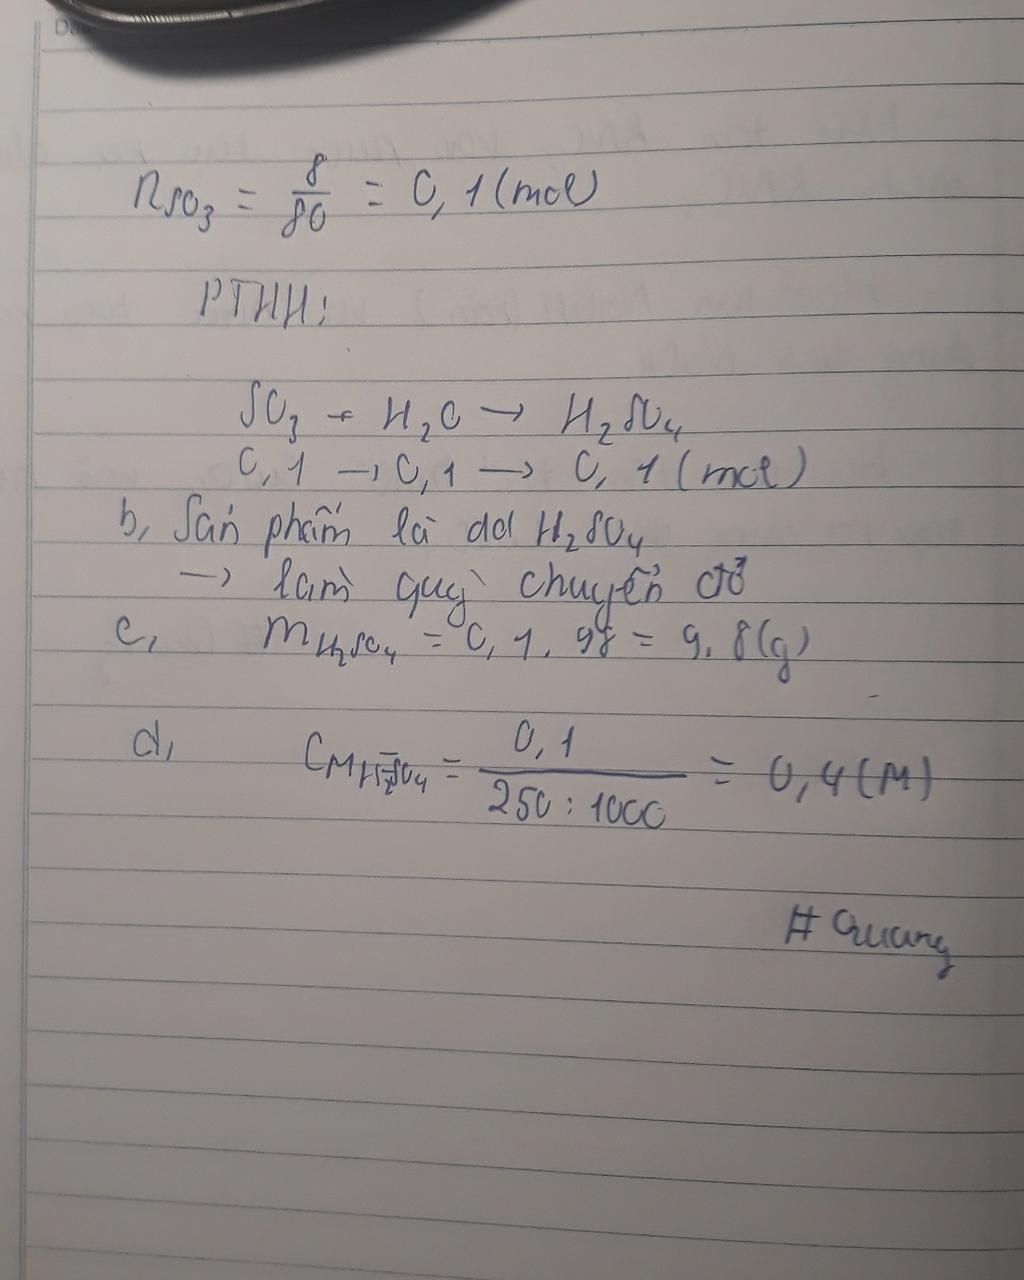 nSO3 = 8/80 = 0,1 (mol)
PTHH:
SO3 + H2O → H2SO4
0,1 → 0,1 → 0,1 (mol)
b, Sản phẩm là dd H2SO4
→ làm quỳ chuyển đỏ
c, mH2SO4 = 0,1. 98 = 9,8(g)
d, CM H2SO4 = 0,1 / 250 : 1000 = 0,4 (M)
# Quang